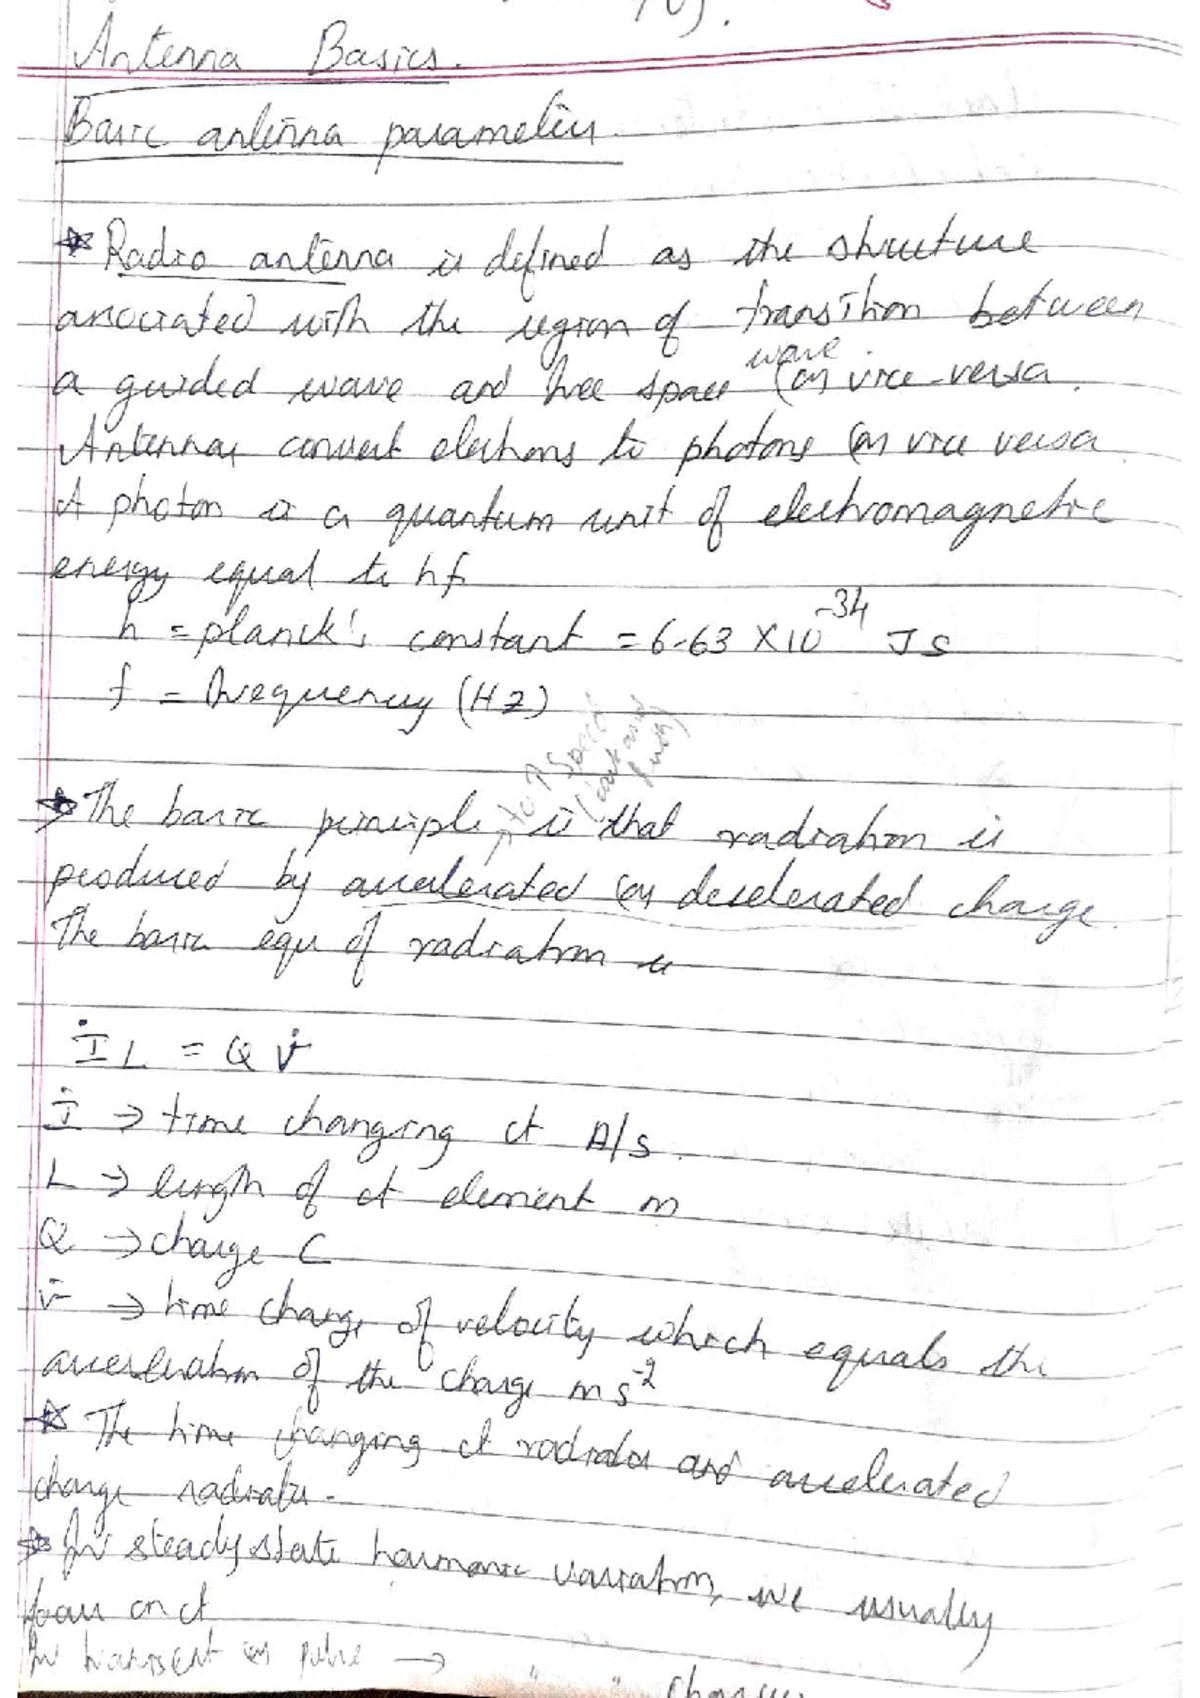 Antenna Basics.
Basic antenna parameters.
* Radio antenna is defined as the structure
associated with the region of transition between
wave
a guided wave and free space (or) vice-versa.
Antennas convert electrons to photons (or) vice versa
A photon is a quantum unit of electromagnetic
energy equal to hf
h = planck's constant = 6.63 X 10⁻³⁴ JS
f = frequency (HZ)
* The basic principle is that radiation is
produced by accelerated (or) decelerated charge.
The basic equ of radiation is
İ L = Q v̇
İ → time changing ct A/s.
L → length of ct element m
Q → charge C
v̇ → time change of velocity which equals the
acceleration of the charge m s⁻²
* The time changing ct radiates and accelerated
charge radiates.
* For steady state harmonic variation, we usually
focus on ct
For transient (or) pulse → " " charge